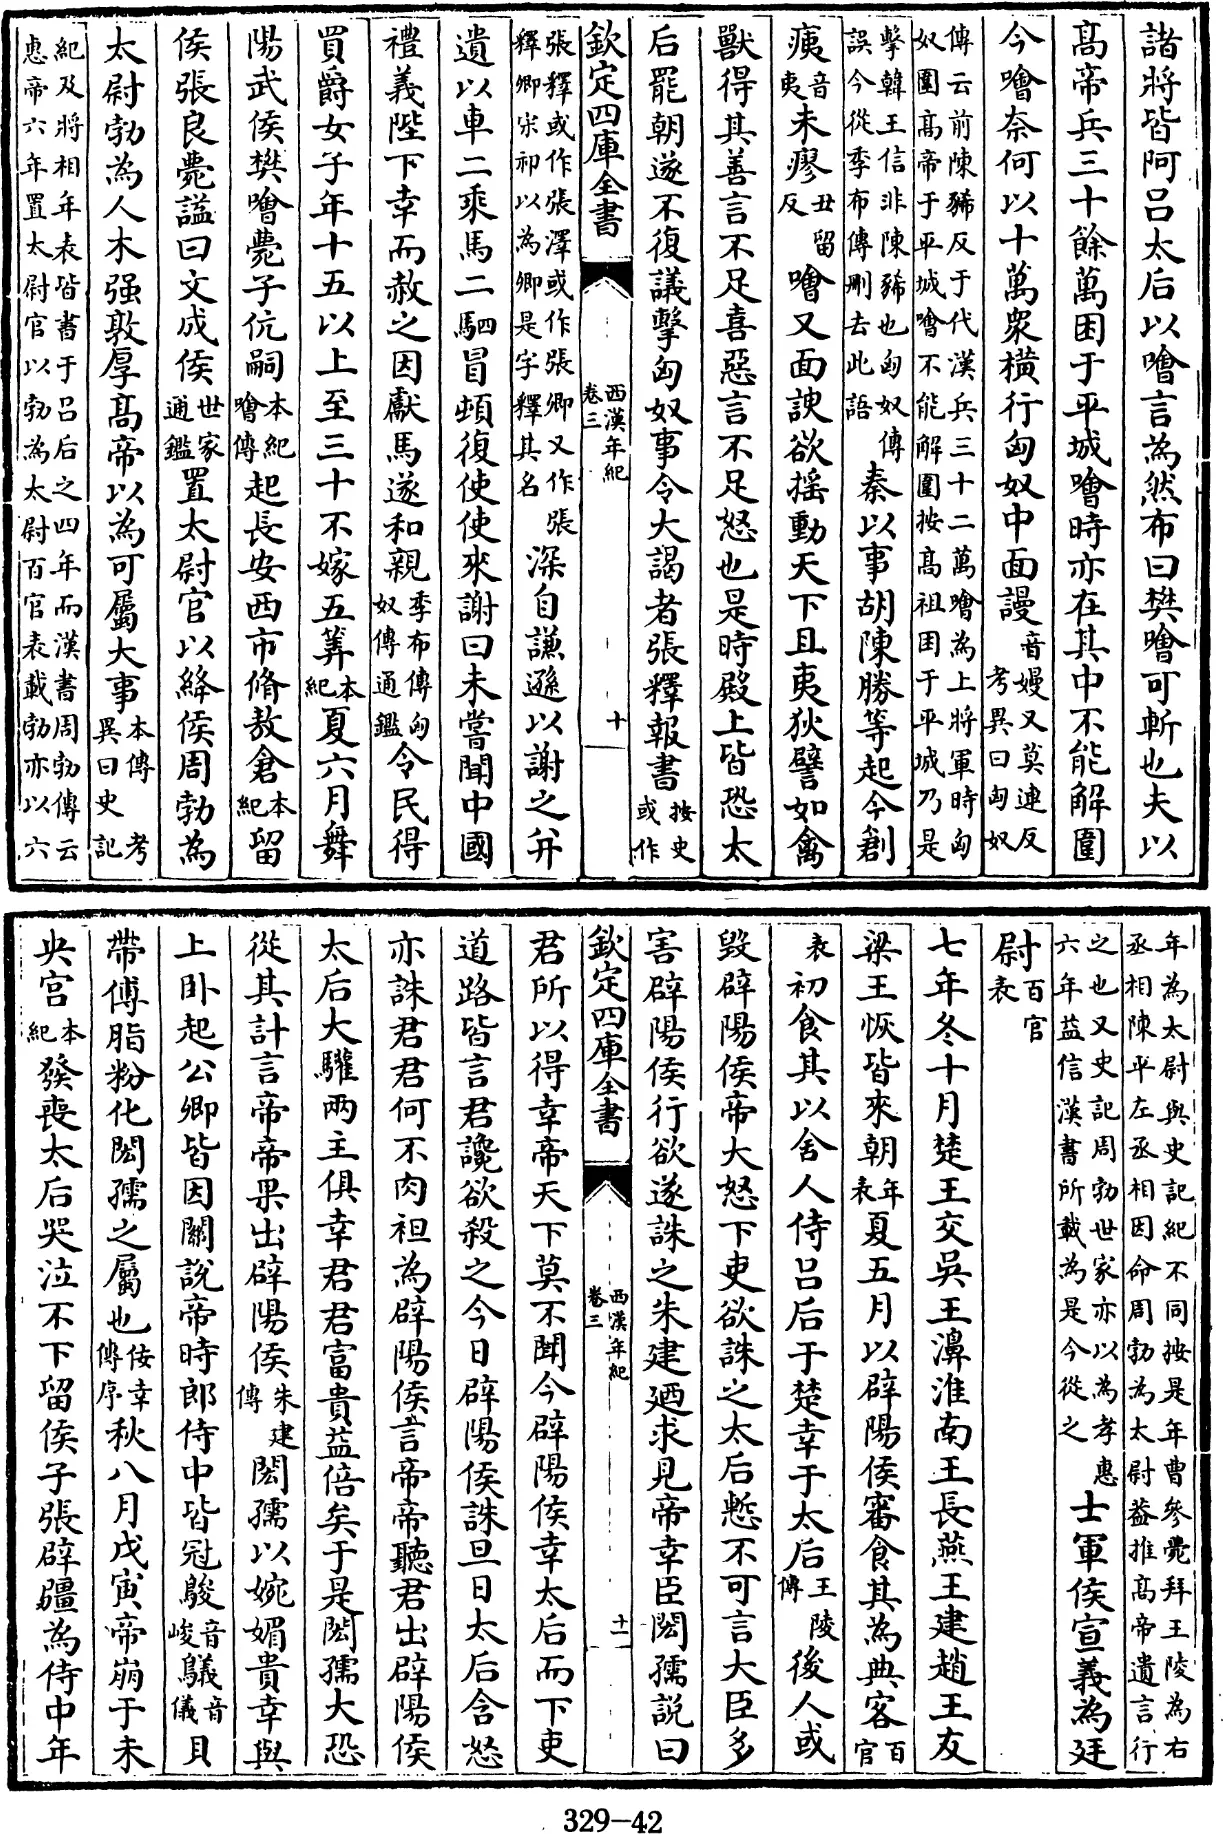 諸將皆阿吕太后以噲言為然布曰樊噲可斬也夫以
髙帝兵三十餘萬困于平城噲時亦在其中不能解圍
今噲奈何以十萬衆横行匈奴中面謾音嫚又莫連反考異曰匈奴
傳云前陳豨反于代漢兵三十二萬噲為上將軍時匈
奴圍髙帝于平城噲不能解圍按髙祖困于平城乃是
擊韓王信非陳豨也匈奴傳
誤今從季布傳刪去此語秦以事胡陳勝等起今創
痍音夷未瘳丑留反噲又面諛欲揺動天下且夷狄譬如禽
獸得其善言不足喜惡言不足怒也是時殿上皆恐太
后罷朝遂不復議擊匈奴事令大謁者張釋報書按史或作
欽定四庫全書 西漢年紀 卷三 十
張釋或作張澤或作張卿又作張
釋卿宋祁以為卿是字釋其名深自謙遜以謝之并
遺以車二乘馬二駟冒頓復使使來謝曰未嘗聞中國
禮義陛下幸而赦之因獻馬遂和親季布傳匈奴傳通鑑令民得
買爵女子年十五以上至三十不嫁五筭本紀夏六月舞
陽武侯樊噲薨子伉嗣本紀噲傳起長安西市脩敖倉本紀留
侯張良薨諡曰文成侯世家通鑑置太尉官以絳侯周勃為
太尉勃為人木强敦厚髙帝以為可屬大事本傳考異曰史記
紀及將相年表皆書于吕后之四年而漢書周勃傳云
惠帝六年置太尉官以勃為太尉百官表載勃亦以六
年為太尉與史記紀不同按是年曹參薨拜王陵為右
丞相陳平左丞相因命周勃為太尉葢推髙帝遺言行
之也又史記周勃世家亦以為孝惠
六年益信漢書所載為是今從之士軍侯宣義為廷
尉百官表
七年冬十月楚王交吳王濞淮南王長燕王建趙王友
梁王恢皆來朝年表夏五月以辟陽侯審食其為典客百官
表初食其以舍人侍吕后于楚幸于太后王陵傳後人或
毁辟陽侯帝大怒下吏欲誅之太后慙不可言大臣多
害辟陽侯行欲遂誅之朱建廼求見帝幸臣閎孺説曰
欽定四庫全書 西漢年紀 卷三 十一
君所以得幸帝天下莫不聞今辟陽侯幸太后而下吏
道路皆言君讒欲殺之今日辟陽侯誅旦日太后含怒
亦誅君君何不肉袒為辟陽侯言帝帝聽君出辟陽侯
太后大驩兩主俱幸君君富貴益倍矣于是閎孺大恐
從其計言帝帝果出辟陽侯朱建傳閎孺以婉媚貴幸與
上卧起公卿皆因關説帝時郎侍中皆冠鵔音峻鸃音儀貝
帶傅脂粉化閎孺之屬也佞幸傳序秋八月戊寅帝崩于未
央宫本紀發喪太后哭泣不下留侯子張辟彊為侍中年
329-42